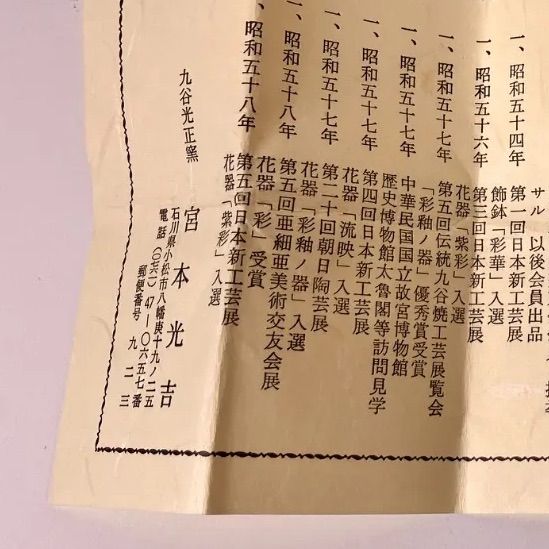 サル 以後会員出品
一、昭和五十四年 第一回日本新工芸展
飾鉢「彩華」入選
一、昭和五十六年 第三回日本新工芸展
花器「紫彩」入選
一、昭和五十七年 第五回伝統九谷焼工芸展覧会
「彩釉ノ器」優秀賞受賞
一、昭和五十七年 中華民国国立故宮博物館
歴史博物館太魯閣等訪問見学
一、昭和五十七年 第四回日本新工芸展
花器「流映」入選
一、昭和五十七年 第二十回朝日陶芸展
花器「彩釉ノ器」入選
一、昭和五十八年 第五回亜細亜美術交友会展
花器「彩」受賞
一、昭和五十八年 第五回日本新工芸展
花器「紫彩」入選
九谷光正窯
宮本光吉
石川県小松市八幡庚十九ノ二五
電話 47―〇六五七番
郵便番号 九二三